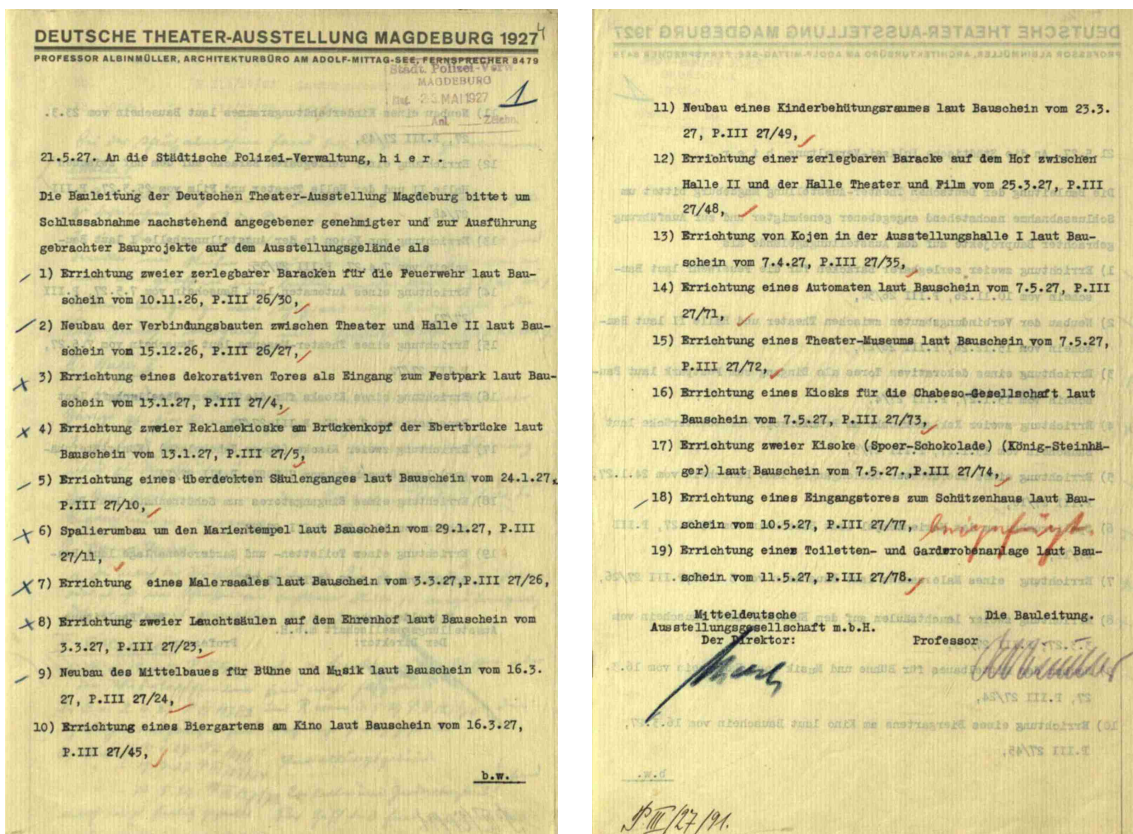 DEUTSCHE THEATER-AUSSTELLUNG MAGDEBURG 1927
4
PROFESSOR ALBINMÜLLER, ARCHITEKTURBÜRO AM ADOLF-MITTAG-SEE, FERNSPRECHER 8479
Städt. Polizei-Verw.
MAGDEBURG
23. MAI 1927
1
21.5.27. An die Städtische Polizei-Verwaltung, h i e r .
Die Bauleitung der Deutschen Theater-Ausstellung Magdeburg bittet um
Schlussabnahme nachstehend angegebener genehmigter und zur Ausführung
gebrachter Bauprojekte auf dem Ausstellungsgelände als
1) Errichtung zweier zerlegbarer Baracken für die Feuerwehr laut Bau-
schein vom 10.11.26, P.III 26/30,
2) Neubau der Verbindungsbauten zwischen Theater und Halle II laut Bau-
schein vom 15.12.26, P.III 26/27,
3) Errichtung eines dekorativen Tores als Eingang zum Festpark laut Bau-
schein vom 13.1.27, P.III 27/4,
4) Errichtung zweier Reklamekioske am Brückenkopf der Ebertbrücke laut
Bauschein vom 13.1.27, P.III 27/5,
5) Errichtung eines überdeckten Säulenganges laut Bauschein vom 24.1.27,
P.III 27/10,
6) Spalierumbau um den Marientempel laut Bauschein vom 29.1.27, P.III
27/11,
7) Errichtung eines Malersaales laut Bauschein vom 3.3.27,P.III 27/26,
8) Errichtung zweier Leuchtsäulen auf dem Ehrenhof laut Bauschein vom
3.3.27, P.III 27/23,
9) Neubau des Mittelbaues für Bühne und Musik laut Bauschein vom 16.3.
27, P.III 27/24,
10) Errichtung eines Biergartens am Kino laut Bauschein vom 16.3.27,
P.III 27/45,
b.w.
11) Neubau eines Kinderbehütungsraumes laut Bauschein vom 23.3.
27, P.III 27/49,
12) Errichtung einer zerlegbaren Baracke auf dem Hof zwischen
Halle II und der Halle Theater und Film vom 25.3.27, P.III
27/48,
13) Errichtung von Kojen in der Ausstellungshalle I laut Bau-
schein vom 7.4.27, P.III 27/35,
14) Errichtung eines Automaten laut Bauschein vom 7.5.27, P.III
27/71,
15) Errichtung eines Theater-Museums laut Bauschein vom 7.5.27,
P.III 27/72,
16) Errichtung eines Kiosks für die Chabeso-Gesellschaft laut
Bauschein vom 7.5.27, P.III 27/73,
17) Errichtung zweier Kisoke (Spoer-Schokolade) (König-Steinhä-
ger) laut Bauschein vom 7.5.27.,P.III 27/74,
18) Errichtung eines Eingangstores zum Schützenhaus laut Bau-
schein vom 10.5.27, P.III 27/77,
beigefügt.
19) Errichtung eines Toiletten- und Garderobenanlage laut Bau-
schein vom 11.5.27, P.III 27/78.
Mitteldeutsche Die Bauleitung.
Ausstellungsgesellschaft m.b.H.
Der Direktor: Professor
P. III/27/91.